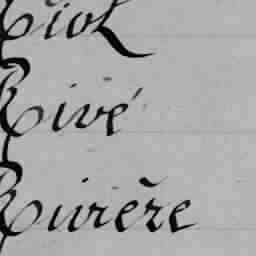 Riol
Rivé
Rivière